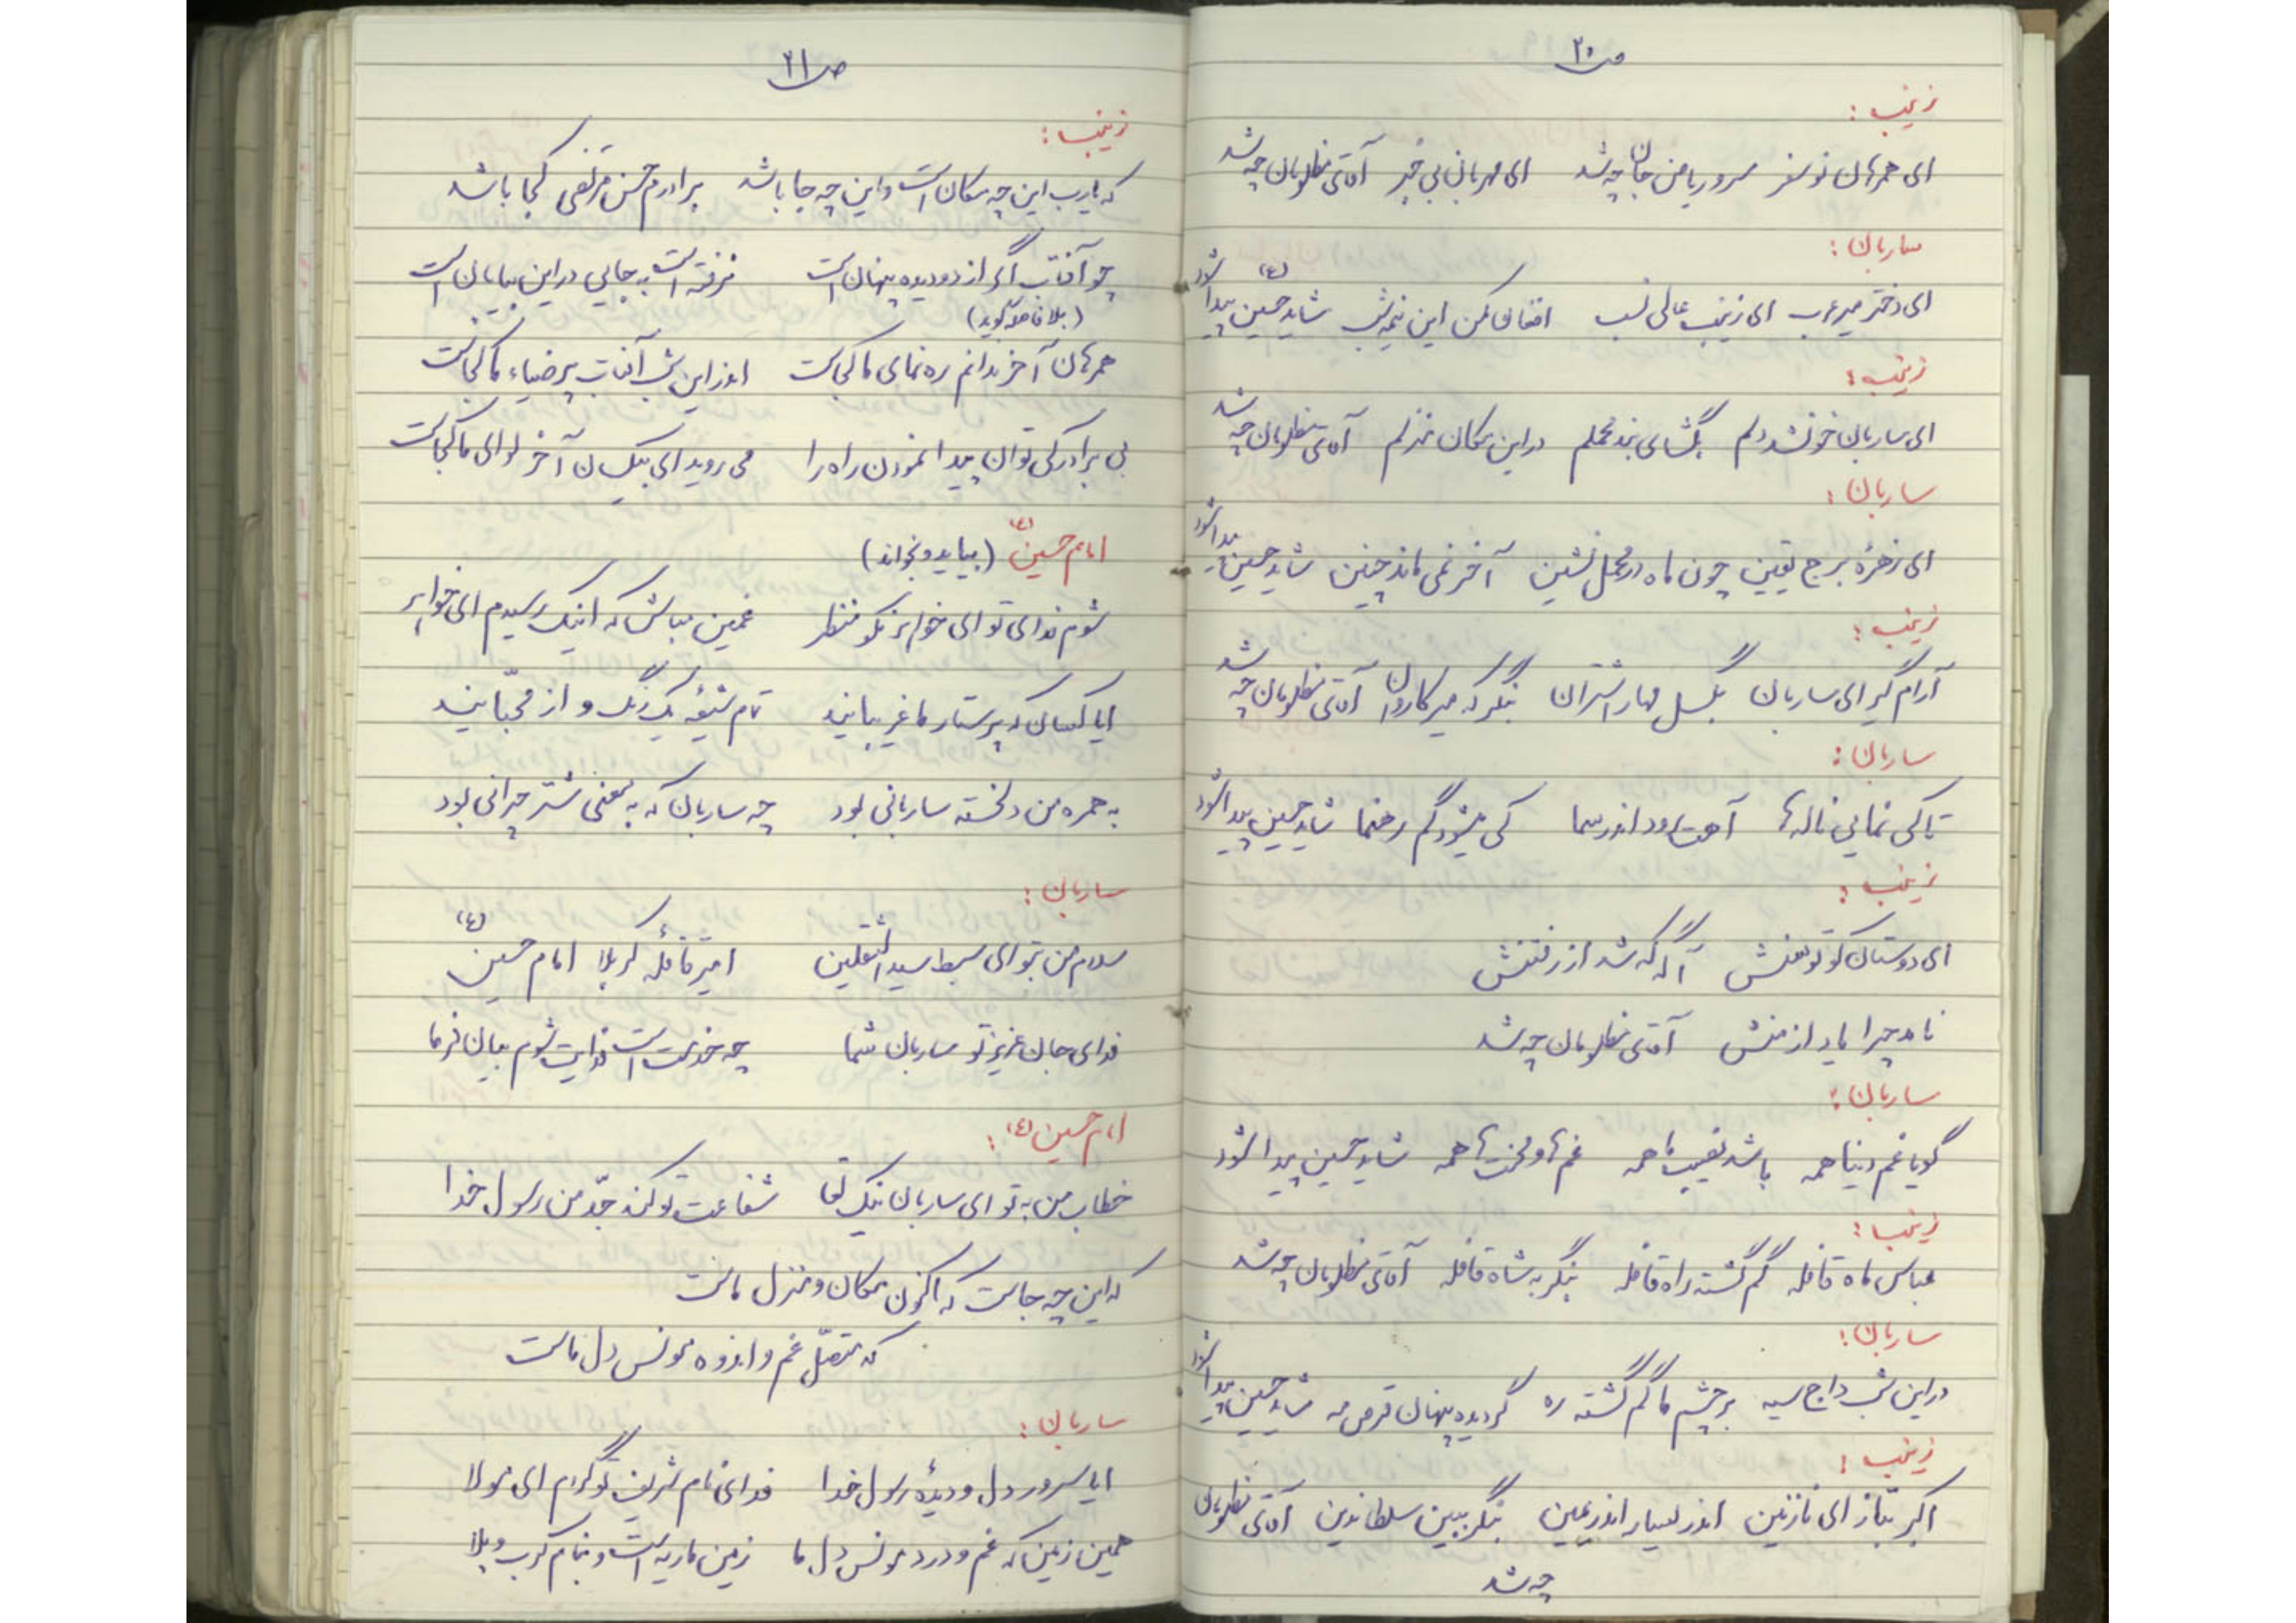 ص۲۰
زینب:
ای همرهان نوسفر سرور یاران من چه شد ای مهربانی بی خبر آقای مظلومان چه شد
ساربان:
ای دختر میر عرب ای زینب عالی نسب افغان مکن این نیمه شب شاید حسین (ع) پیدا شود
زینب:
ای ساربان خون شد دلم بگشای بند محملم در این مکان منزلم آقای مظلومان چه شد
ساربان:
ای زهرهٔ برج یقین چون ماه در محمل نشین آخر نمی ماند چنین شاید حسین پیدا شود
زینب:
آرام گیر ای ساربان بگسل مهار اشتران بنگر که میر کاروان آقای مظلومان چه شد
ساربان:
تا کی نمایی ناله ها آهت رود اندر سما کی میشود گم رهنما شاید حسین پیدا شود
زینب:
ای دوستان کو توسنش آگه که شد از رفتنش
نامد چرا یاد از منش آقای مظلومان چه شد
ساربان:
گویا غم دنیا همه باشد نصیب ما همه غم ها و محنت ها همه شاید حسین پیدا شود
زینب:
عباس ماه قافله گم گشته راه قافله بنگر به شاه قافله آقای مظلومان چه شد
ساربان:
در این شب داج سیه بر چشم ما گم گشته ره گردیده پنهان قرص مه شاید حسین پیدا شود
زینب:
اکبر بتاز ای نازنین اندر یسار اندر یمین بنگر ببین سلطان دین آقای مظلومان
چه شد
ص۲۱
زینب:
که یارب این چه مکان است و این چه جا باشد برادرم حسن مرتضی کجا باشد
چو آفتاب اگر از دو دیده پنهان است نرفته است به جایی در این بیابان است
(بلافاصله گوید)
همرهان آخر ندانم ره نمای ما کجاست اندر این شب آفتاب پر ضیاء ما کجاست
بی برادر کی توان پیدا نمودن راه را می روید ای بیکسان آخر لوای ما کجاست
امام حسین (ع) (بیاید و بخواند)
شوم فدای تو ای خواهر نکو منظر غمین مباش که اینک رسیدم ای خواهر
ایا کسان که پرستار ما غریبانید تمام شیعه یک رنگ و از محبّانید
به همره من دلخسته ساربانی بود چه ساربان که به معنی شتر چرانی بود
ساربان:
سلام من بتو ای سبط سید الثقلین امیر قافلهٔ کربلا امام حسین (ع)
فدای جان عزیز تو ساربان شما چه خدمت است فدایت شوم بیان فرما
امام حسین (ع):
خطاب من به تو ای ساربان نیک لقا شفاعت تو کند جدّ من رسول خدا
که این چه جاست که اکنون مکان و منزل ماست
که متصّل غم و اندوه مونس دل ماست
ساربان:
ایا سرور دل و دیدهٔ رسول خدا فدای نام شریف تو گردم ای مولا
همین زمین که غم و درد مونس دل ما زمین ماریه است و بنام کرب و بلا